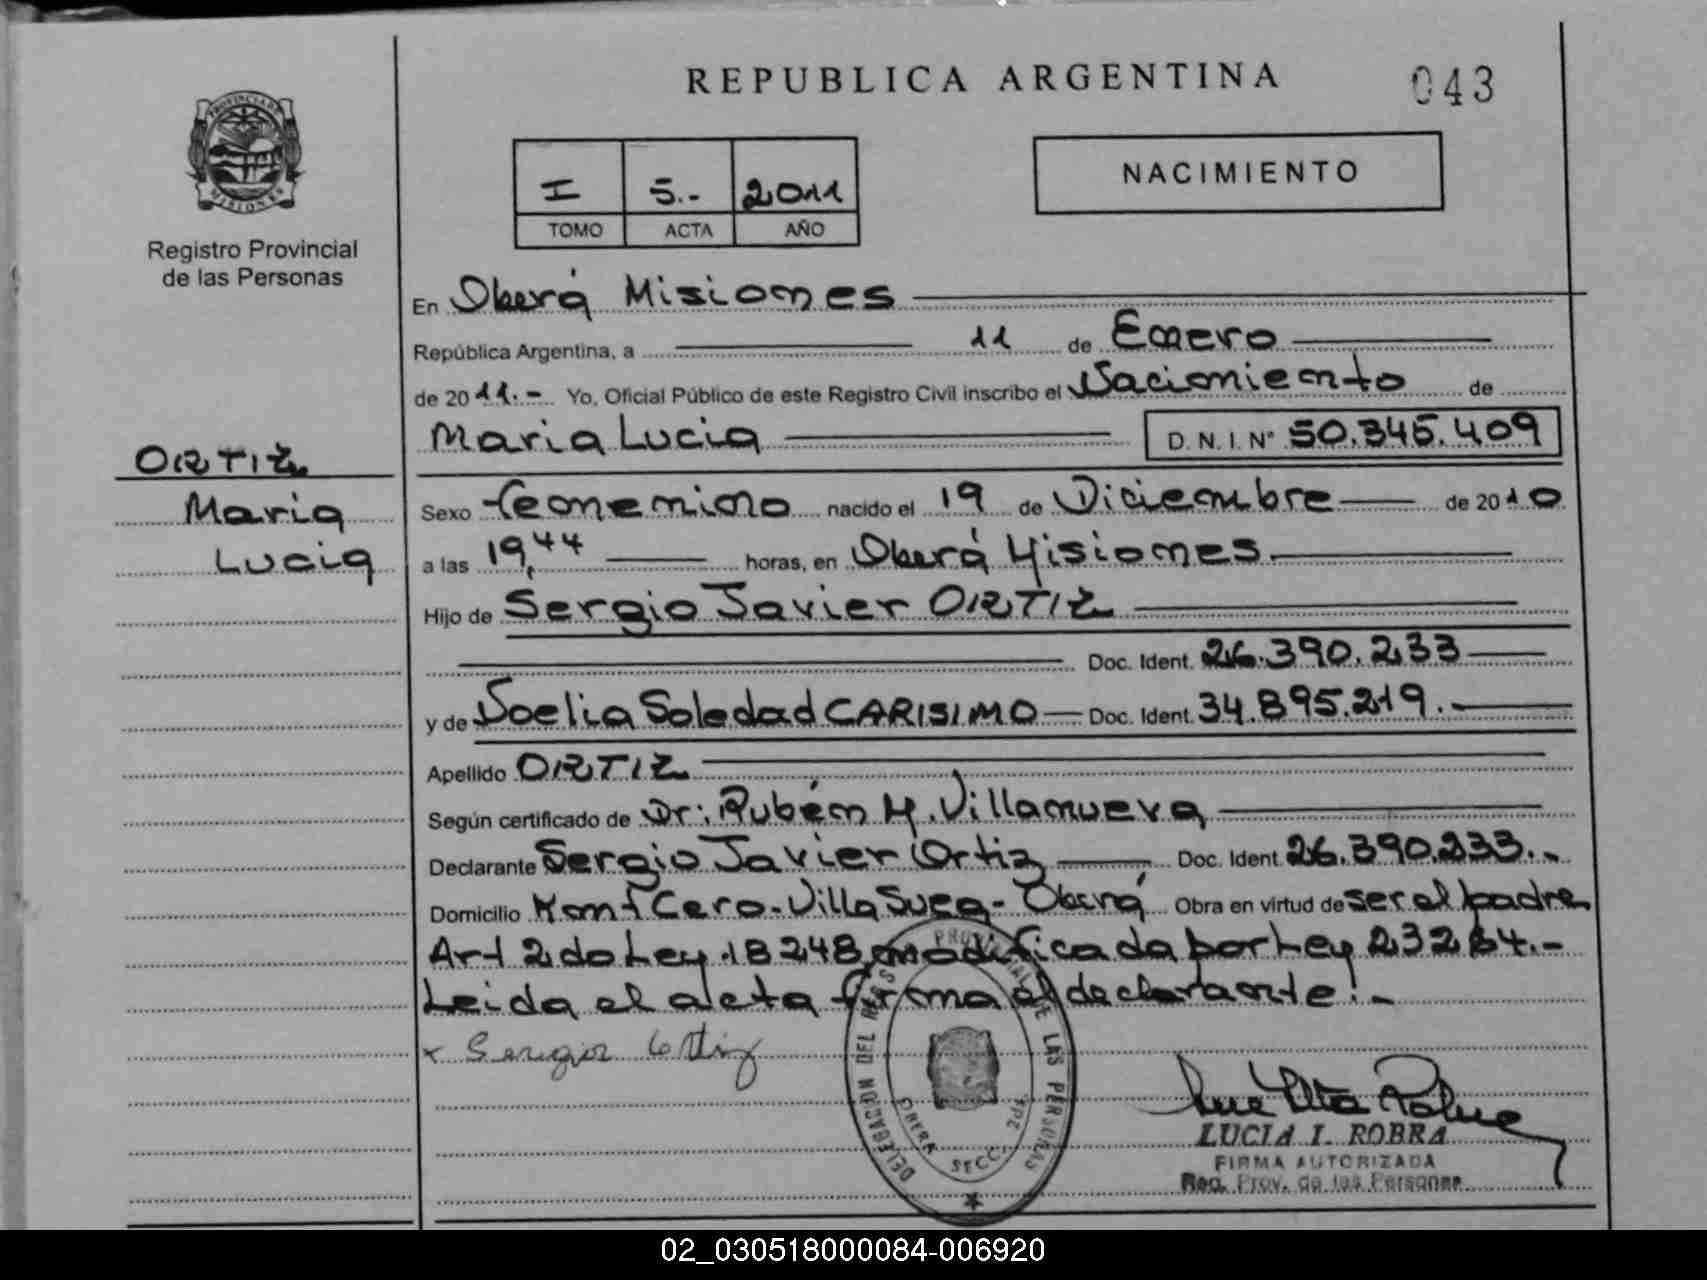 REPUBLICA ARGENTINA
043
PROVINCIA DE
MISIONES
Registro Provincial
de las Personas
I
5.-
2011
TOMO
ACTA
AÑO
NACIMIENTO
En Oberá Misiones
República Argentina, a 11 de Enero
de 2011.- Yo, Oficial Público de este Registro Civil inscribo el Nacimiento de
Maria Lucia D. N. I. N° 50.345.409
ORTIZ
Maria
Lucia
Sexo femenino nacido el 19 de Diciembre de 2010
a las 19,44 horas, en Oberá Misiones.
Hijo de Sergio Javier ORTIZ
Doc. Ident. 26.390.233
y de Noelia Soledad CARISIMO Doc. Ident. 34.895.219.
Apellido ORTIZ
Según certificado de Dr: Rubén M. Villanueva
Declarante Sergio Javier Ortiz Doc. Ident. 26.390.233.-
Domicilio Villa Oberá Obra en virtud de ser el padre
Art 2 do Ley 18248 modificada por Ley 23264.-
Leida el acta firma el declarante.-
x Sergio Ortiz
DELEGACION DEL REG. PROVINCIAL DE LAS PERSONAS
OBERA SECC. 2da.
LUCIA I. ROBRA
FIRMA AUTORIZADA
Reg. Prov. de las Personas
02_030518000084-006920